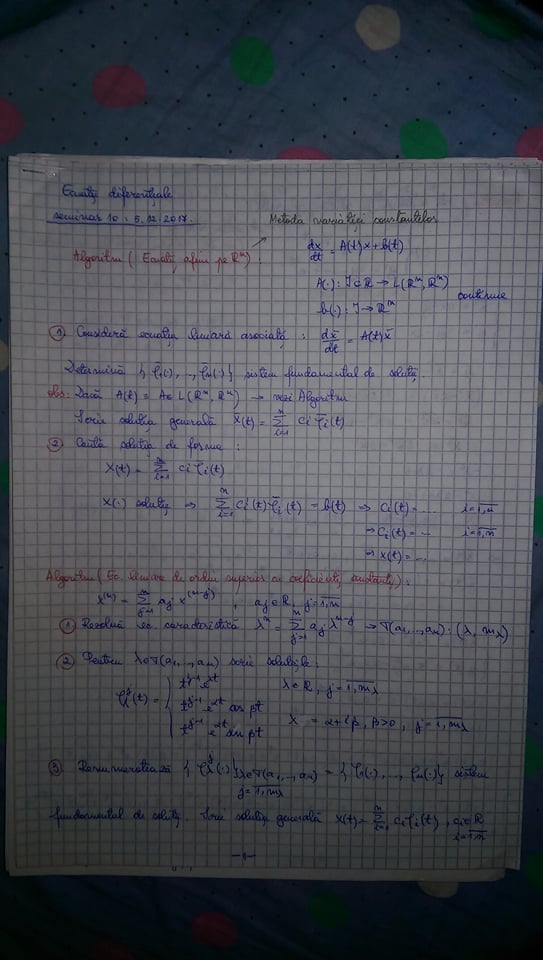 Ecuații diferențiale
seminar 10 : 5.12.2017.
Metoda variației constantelor
Algoritm ( Ecuații afine pe ℝⁿ) : dx/dt = A(t)x + b(t)
A(·) : J ⊂ ℝ → L(ℝⁿ, ℝⁿ)
continue
b(·) : J → ℝⁿ
① Consideră ecuația liniară asociată : dx̄/dt = A(t)x̄
Determină {φ̄₁(·), .., φ̄ₙ(·)} sistem fundamental de soluții.
obs: Dacă A(t) ≡ A ∈ L(ℝⁿ, ℝⁿ) → vezi Algoritm
Scrie soluția generală x̄(t) = Σⁿᵢ₌₁ cᵢ φ̄ᵢ(t)
② Caută soluții de forma :
x(t) = Σⁿᵢ₌₁ cᵢ(t) φ̄ᵢ(t)
x(·) soluție ⇒ Σⁿᵢ₌₁ cᵢ'(t) φ̄ᵢ(t) = b(t) ⇒ cᵢ'(t) = ... i = 1,n
⇒ cᵢ(t) = ... i = 1,n
⇒ x(t) = ...
Algoritm ( Ec. liniare de ordin superior cu coeficienți constanți) :
x⁽ⁿ⁾ = Σⁿⱼ₌₁ aⱼ x⁽ⁿ⁻ʲ⁾ , aⱼ ∈ ℝ, j = 1,n
① Rezolvă ec. caracteristică λⁿ = Σⁿⱼ₌₁ aⱼ λⁿ⁻ʲ → σ(a₁, .., aₙ) : (λ, m_λ)
② Pentru λ ∈ σ(a₁, .., aₙ) scrie soluțiile :
tʲ⁻¹ e^{λt} λ ∈ ℝ, j = 1,m_λ
φ_λʲ(t) = { tʲ⁻¹ e^{αt} cos βt λ = α + iβ, β > 0, j = 1,m_λ
tʲ⁻¹ e^{αt} sin βt
③ Renumerotează {φ_λʲ(·)} λ ∈ σ(a₁, .., aₙ) = {φ₁(·), .., φₙ(·)} sistem
j = 1,m_λ
fundamental de soluții. Scrie soluția generală x(t) = Σⁿᵢ₌₁ cᵢ φᵢ(t), cᵢ ∈ ℝ
i = 1,n
-1-